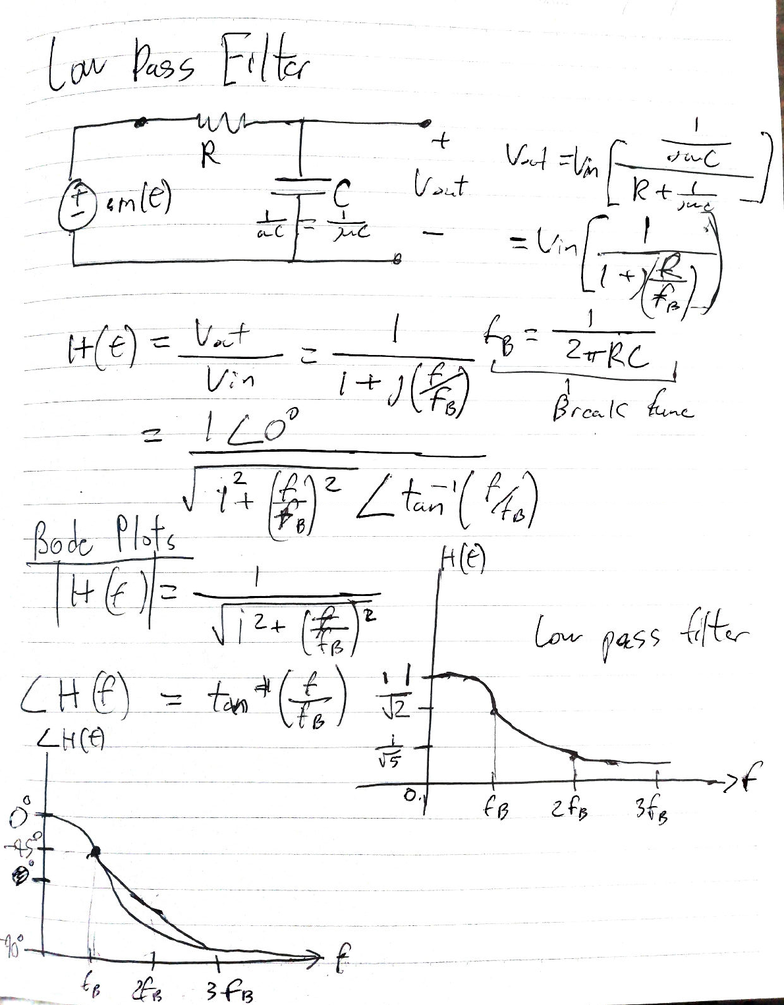 Low Pass Filter
R
+
Vout = Vin [ (1/jωC) / (R + 1/jωC) ]
C
Vout
1/ωC = 1/jωC
−
= Vin [ 1 / (1 + j(R/fB)) ]
H(f) = Vout/Vin = 1 / (1 + j(f/fB))
fB = 1/2πRC
Break func
= 1∠0° / √(1² + (f/fB)²) ∠tan⁻¹(f/fB)
Bode Plots
|H(f)| = 1 / √(1² + (f/fB)²)
H(f)
Low pass filter
1
1/√2
1/√5
0
fB 2fB 3fB
f
∠H(f) = tan⁻¹(f/fB)
∠H(f)
0°
-45°
-90°
fB 2fB 3fB
f